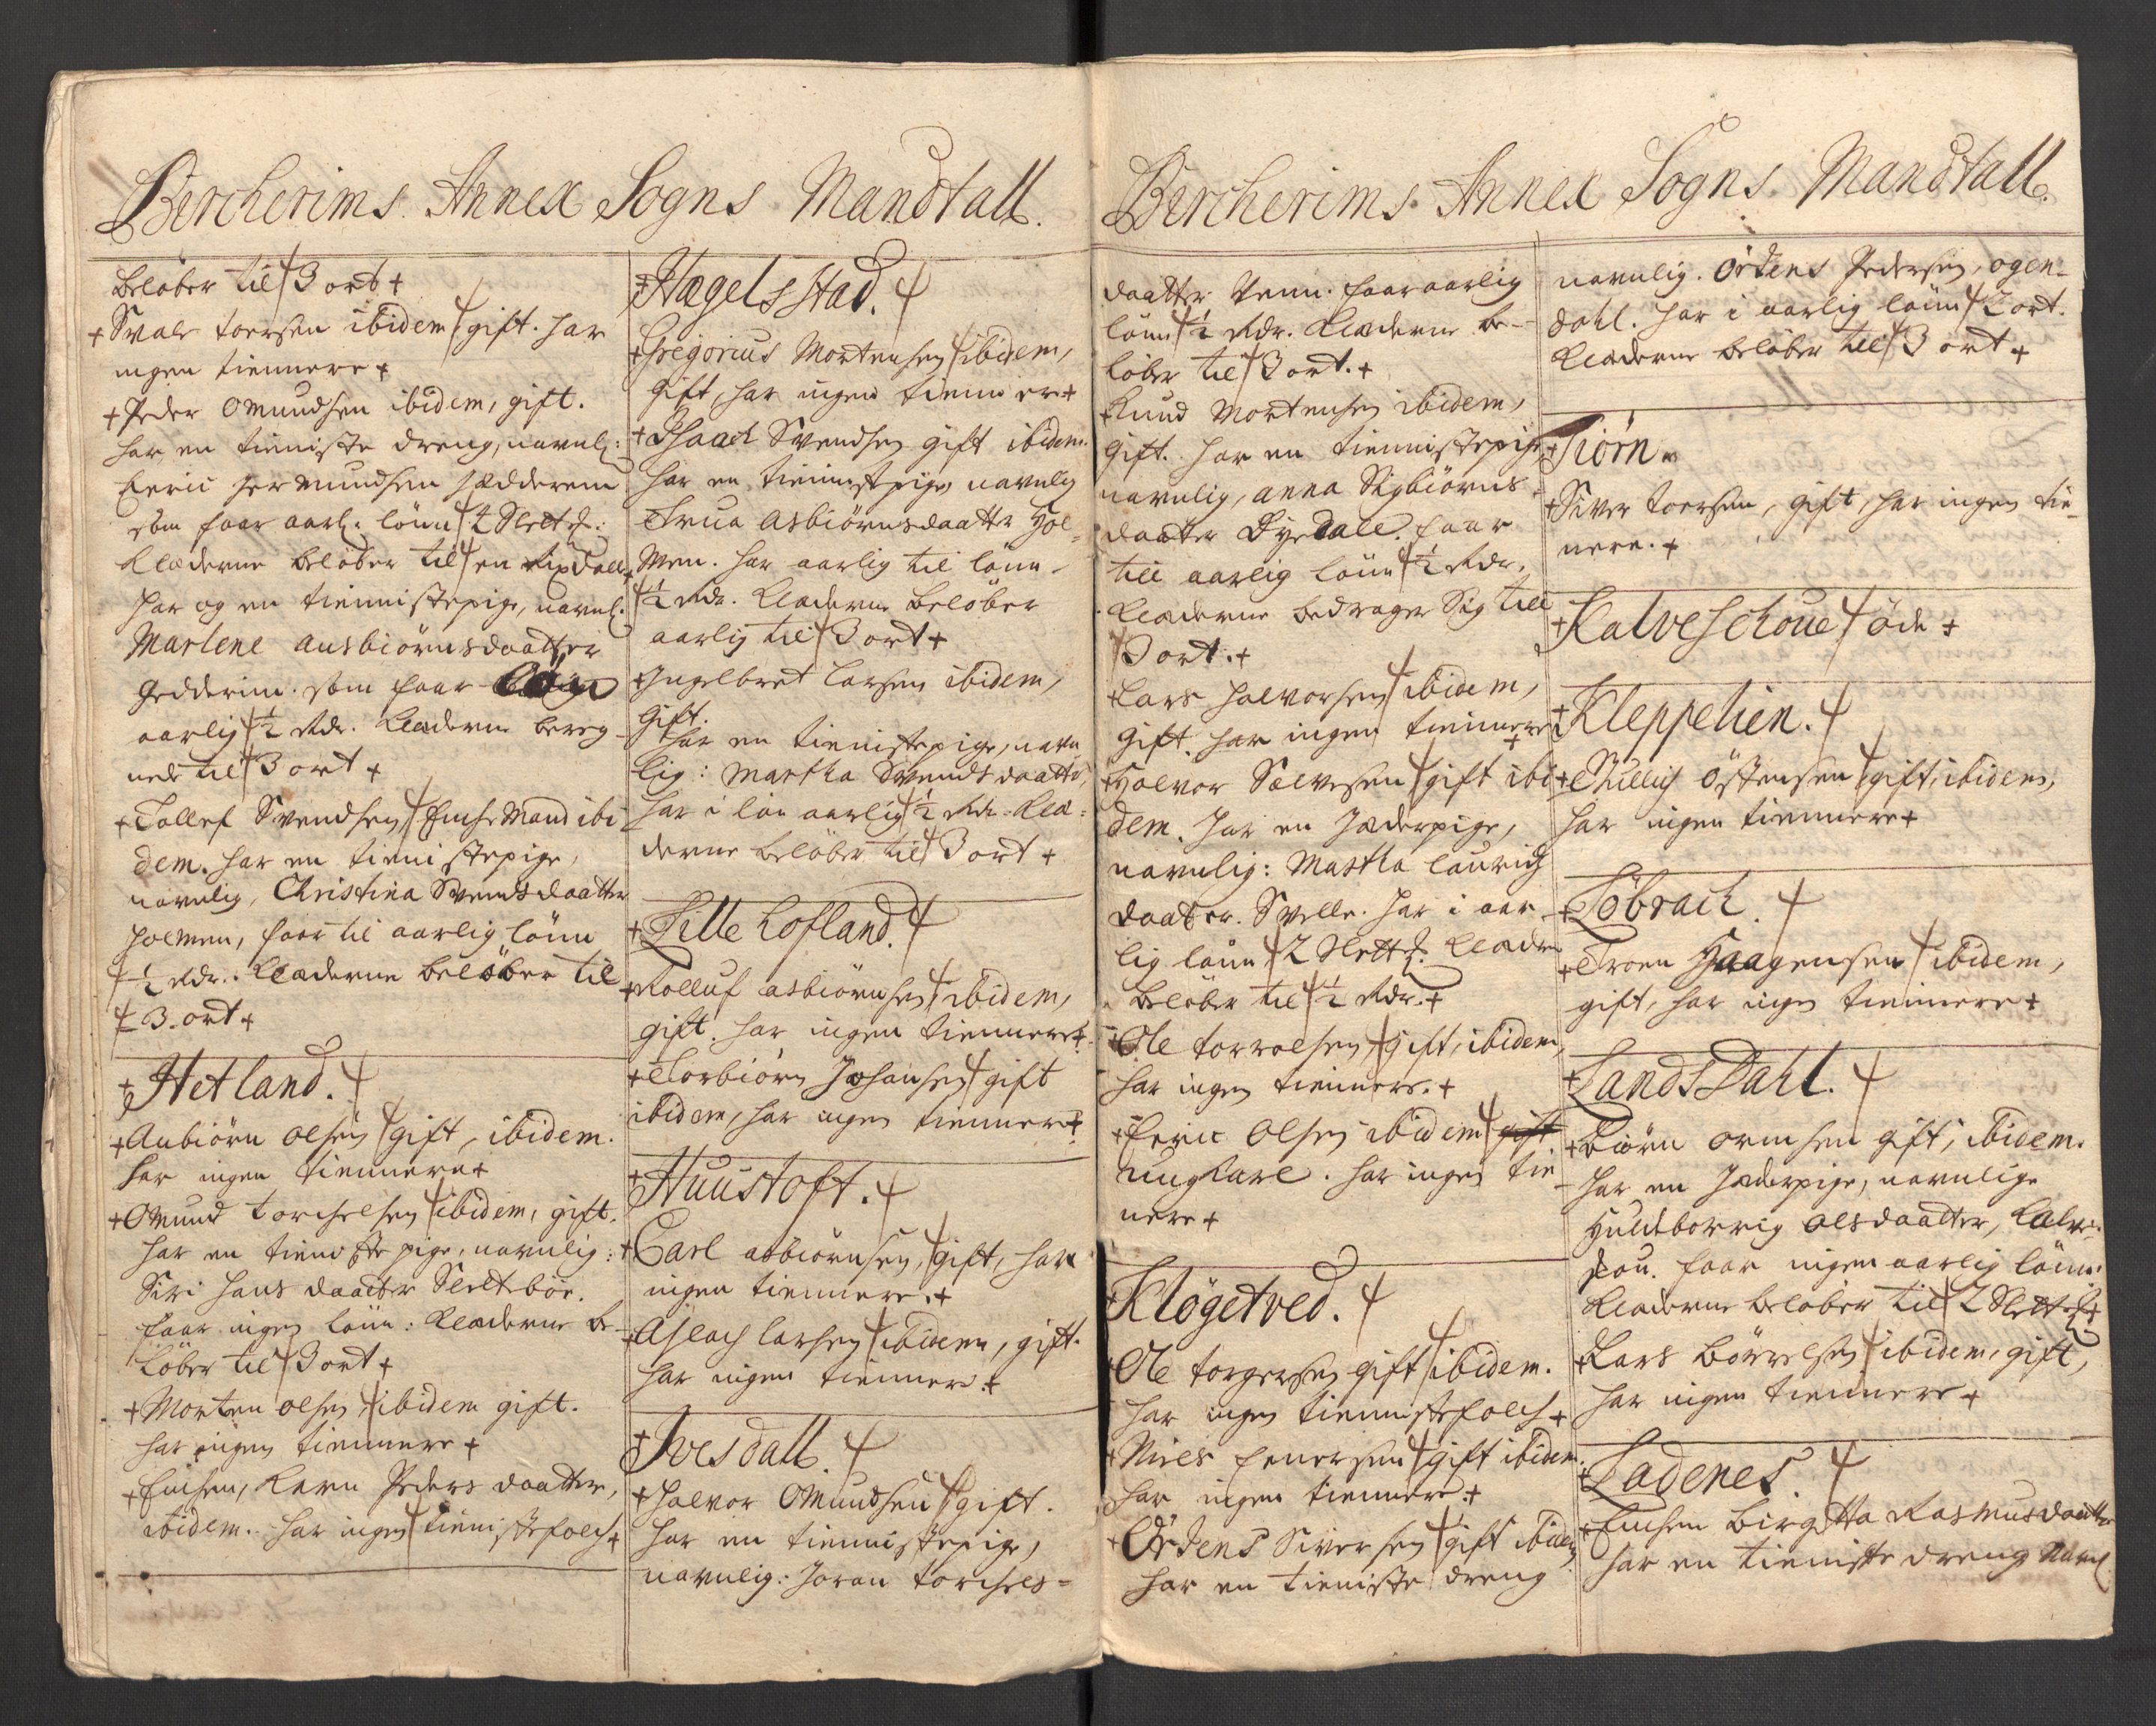 Bercherims Annex Sogns Mandtall.
beløber til 3 ort
Svale toersen ibidem gift. har
ingen tiennere
Peder Omundsen ibidem, gift.
har en tienniste dreng, navnl:
Eeric Hermundsen
som faar aarl: lönn 4 Slet d:
Klæderne beløber til en rixdaller
har og en tiennistepige, navnl:
Marlene Ausbiörnsdaatter
Gedderim. som faar
aarlig ½ Rdr. Klæderne bereg
nes til 3 ort
Tollef Svendsen Enche Mand ibi
dem. har en tiennistepige,
navnlig, Christina Svendsdaatter
Holmen, faar til aarlig lönn
½ Rdr. Klæderne beløber til
3. ort
Hetland.
Aubiörn olsen gift, ibidem.
har ingen tiennere
Omund torchelsen ibidem, gift.
har en tienniste pige, navnlig:
Siri Hans daatter Sletteböe.
faar ingen lönn: Klæderne be-
løber til 3 ort
Morten olsen ibidem gift.
har ingen tiennere
Enchen, Karn Peders daatter,
ibidem. har ingen tiennistefolch
Hægelsstad.
Gregorius Mortensen ibidem,
Gift, har ingen tiennere
Isaach Svendsen gift ibidem.
har en tiennistpige navnlig
Trua Asbiörnsdaatter Hol=
men. har aarlig til lönn
½ Rdr. Klæderne beløber
aarlig til 3 ort
Ingelbret Larsen ibidem,
Gift.
har en tiennistepige, navn
lig: Martha Svendsdaatter,
har i lön aarlig ½ Rdr. Klæ=
derne beløber til 3 ort
Lille Lofland.
Rolluf asbiörnsen ibidem,
gift. har ingen tiennere
Torbiörn Johansen gift
ibidem, har ingen tiennere
Huustoft.
Carl asbiörnsen, gift, har
ingen tiennere.
Aslach larsen ibidem, gift.
har ingen tiennere.
Ivesdall.
Halvor Omundsen gift.
har en tiennistepige,
navnlig: Joran torchels=
Bercherims Annex Sogns Mandtall.
daatter faar aarlig
lönn ½ Rdr. Klæderne be-
løber til 3 ort.
Knud Mortensen ibidem,
Gift. har en tiennistepige,
navnlig, anna Sigbiörns
daatter Dyrdall. faar
till aarlig lönn ½ Rdr.
Klæderne bedrager Sig till
3 ort.
Lars Halvorsen ibidem,
Gift. har ingen tiennere
Halvor Salvesen gift ibi
dem. Har en Jæderpige,
navnlig: Martha laurids
daatter. Svelle. har i aar
lig lönn 2 Slett d: Klæder
beløber til ½ Rdr.
Ole torvaelsen, gift, ibidem,
har ingen tiennere.
Eeric Olsen ibidem gift
ungkarl. har ingen tie
nere
Klögetved.
Ole torgersen gift ibidem.
har ingen tiennistefolch
Niels Enersen gift ibidem.
har ingen tiennere
Östens Siversen gift ibidem
har en tienniste dreng
navnlig. Östens Pedersen, ogen-
dahl. har i aarlig lönn 2 ort.
Klæderne beløber till 3 ort
Tiörn
Siver toersen, gift, har ingen tie
nere.
Kalveschoue öde
Kleppelien.
Östensen gift, ibidem,
har ingen tiennere
Löbrach.
Troen Haagensen ibidem,
gift, har ingen tiennere
LandsDahl.
Biörn ormsen gift, ibidem.
har en Jæderpige, navnlige
Huldborrig olsdaatter, Kalve
skou. faar ingen aarlig lönn.
Klæderne beløber til 2 Slett d:
Lars Börrelsen ibidem, gift,
har ingen tiennere
Ladenes.
Enchen Birgitta Rasmusdaatter
har en tienniste dreng Navnl